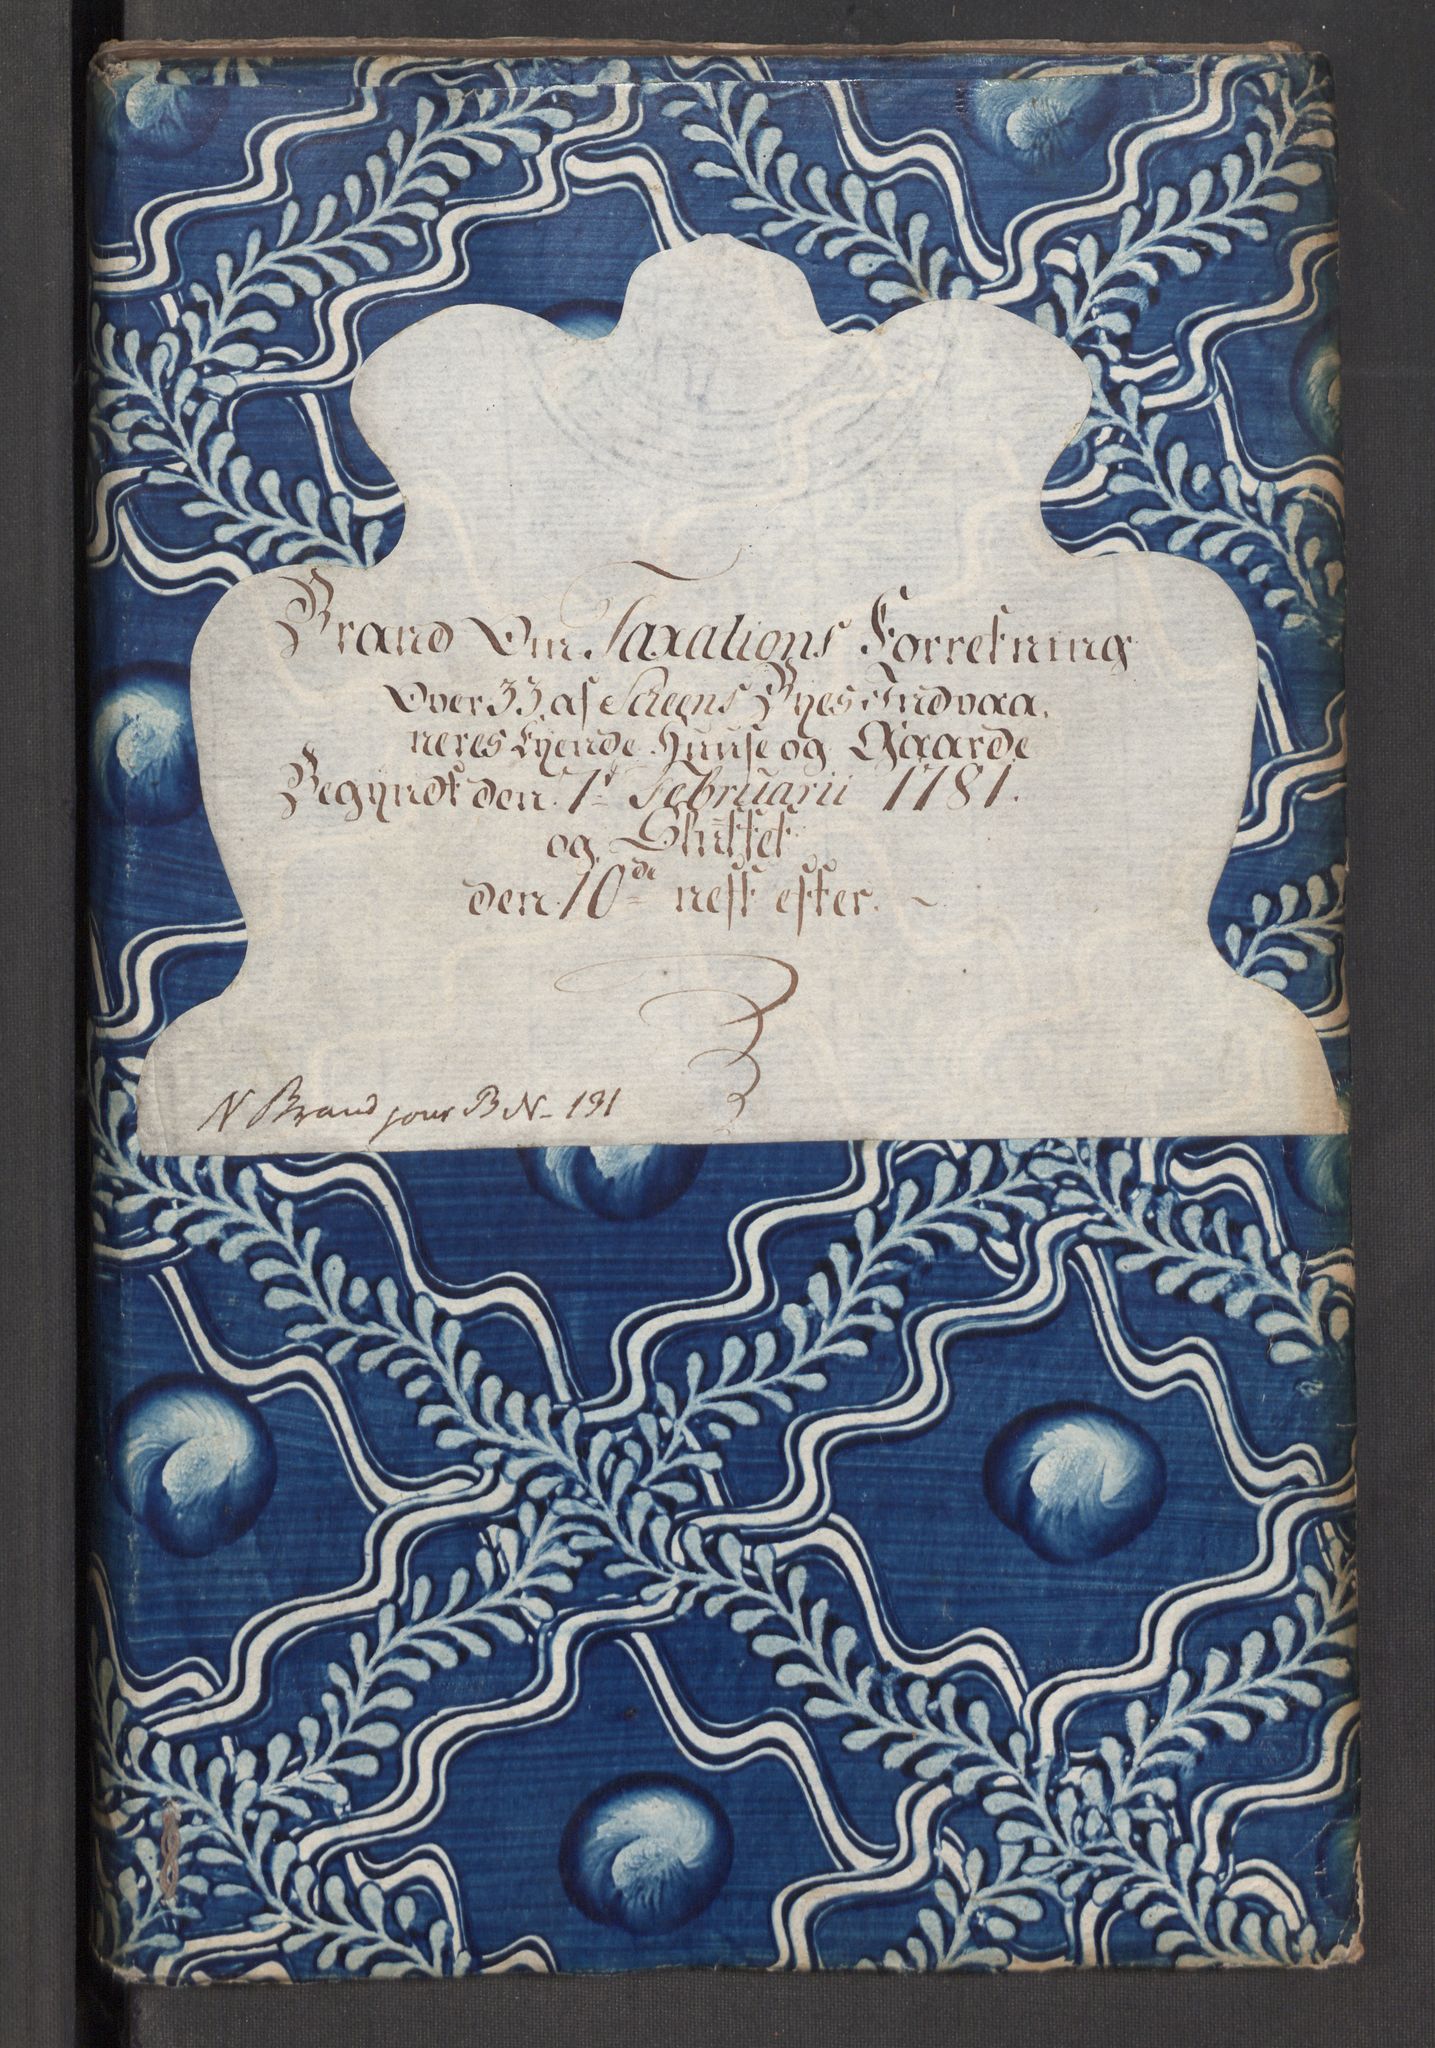 Brand Om Taxations Forretning
Over 33 af Scheens Byes Indvaa,
neres Ejende Huuse og Gaarde
Begyndt den 1t Februarii 1781.
og Sluttet
den 10de nest efter.
N Brand jour B N- 191